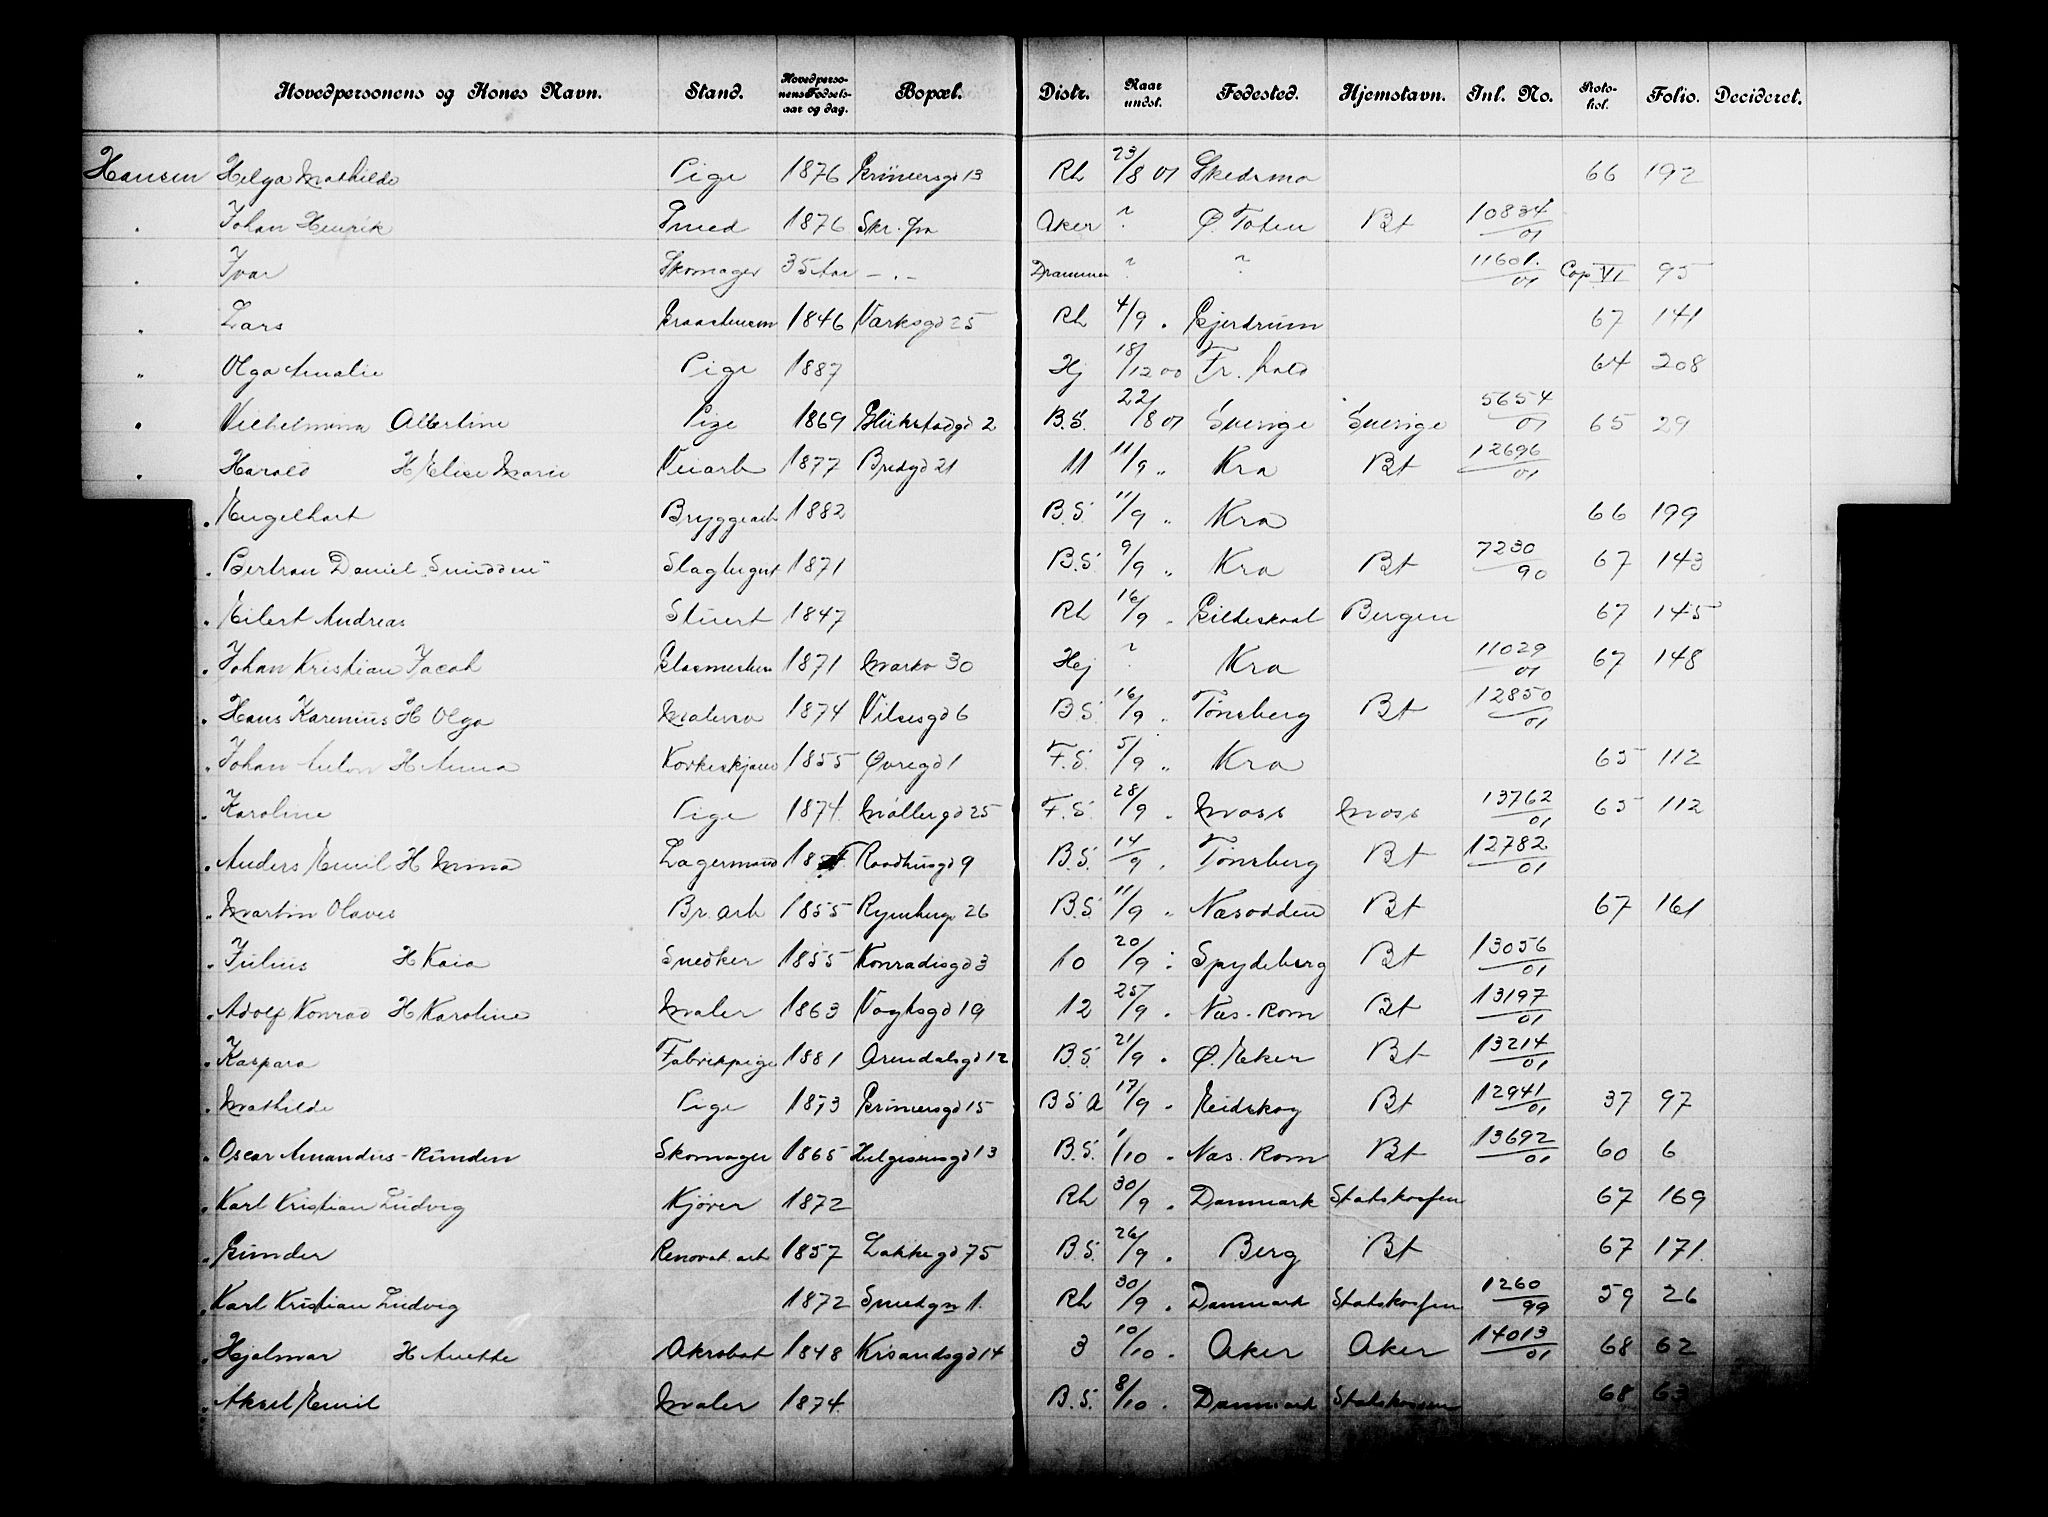 Hovedpersonens og Kones Navn. Stand. Hovedpersonens Fødselsaar og dag. Bopæl. Distr. Naar undst. Fødested. Hjemstavn. Inl. No. Protokol. Folio. Decideret.
Hansen Helga Mathilde Pige 1876 Grünersgd 13 Rh 23/8 01 Skedsmo 66 192
" Johan Henrik Smed 1876 Aker ? Ø. Toten Bt 10834/01
" Ivar Skomager 35 Aar — . — Drammen ? ? 11601/01 Cop VI 95
" Lars 1846 25 Rh 4/9 " Gjerdrum 67 141
" Olga Amalie Pige 1887 Hj 18/12 00 Fr. hald 64 208
" Vilhelmina Albertine Pige 1869 2 B.S. 22/8 01 Sverige Sverige 5654/01 65 29
" Harald H Elise Marie Veiarb 1877 Bredgd 21 11 11/9 " Kra Bt 12696/01
" Engelhart Bryggearb 1882 B.S. 11/9 " Kra 66 199
" Bertran Daniel "Smidden" Slagtergut 1871 B.S. 9/9 " Kra Bt 7230/90 67 143
" Eilert Andreas Stuert 1847 Rh 16/9 " Gildeskaal Bergen 67 145
" Johan Kristian Jacob Glasmester 1871 Markv 30 Hej ? Kra 11029/01 67 148
" Hans Karenius H Olga Malersv 1874 Vilsesgd 6 B.S. 16/9 " Tønsberg Bt 12850/01
" Johan Anton H Anna Korkeskjærer 1855 Øvregd 1 F.S. 5/9 " Kra 65 112
" Karoline Pige 1874 Møllergd 25 F.S. 28/9 " Moss Moss 13762/01 65 112
" Anders Emil H Mina Lagermand Raadhusgd 9 B.S. 14/9 " Tønsberg Bt 12782/01
" Martin Olaves Br. arb 1855 26 B.S. 11/9 " Næsodden Bt 67 161
" Julius H Kaia Snedker 1855 Konradisgd 3 10 20/9 " Spydeberg Bt 13056/01
" Adolf Konrad H Karoline Maler 1863 Vogtsgd 19 12 25/9 " Næs. Rom Bt 13197/01
" Kaspara Fabrikpige 1881 Arendalsgd 12 B.S. 21/9 " Ø. Eker Bt 13214/01
" Mathilde Pige 1873 Grünersgd 15 B S A 17/9 " Eidskog Bt 12941/01 37 97
" Oscar Amandus - Runden Skomager 1865 Helgesensgd 13 B.S. 1/10 " Næs. Rom Bt 13692/01 60 6
" Karl Kristian Ludvig Kjører 1872 Rh 30/9 " Danmark Statskassen 67 169
" Gunder Renovat. arb 1857 Lakkegd 75 B.S. 26/9 " Berg Bt 67 171
" Karl Kristian Ludvig 1872 Smedgn 1. Rh 30/9 " Danmark Statskassen 1260/99 59 26
" Hjalmar H Anette Akrobat 1848 Krsandsgd 14 3 10/10 " Aker Aker 14013/01 68 62
" Aksel Emil Maler 1874 B.S. 8/10 " Danmark Statskassen 68 63